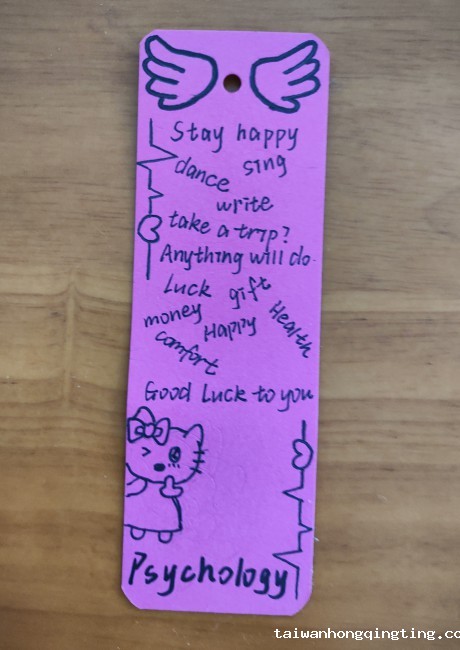 Stay happy
dance sing
write
take a trip?
Anything will do.
Luck gift
money Happy Health
comfort
Good Luck to you
Psychology
taiwanhongqingting.co